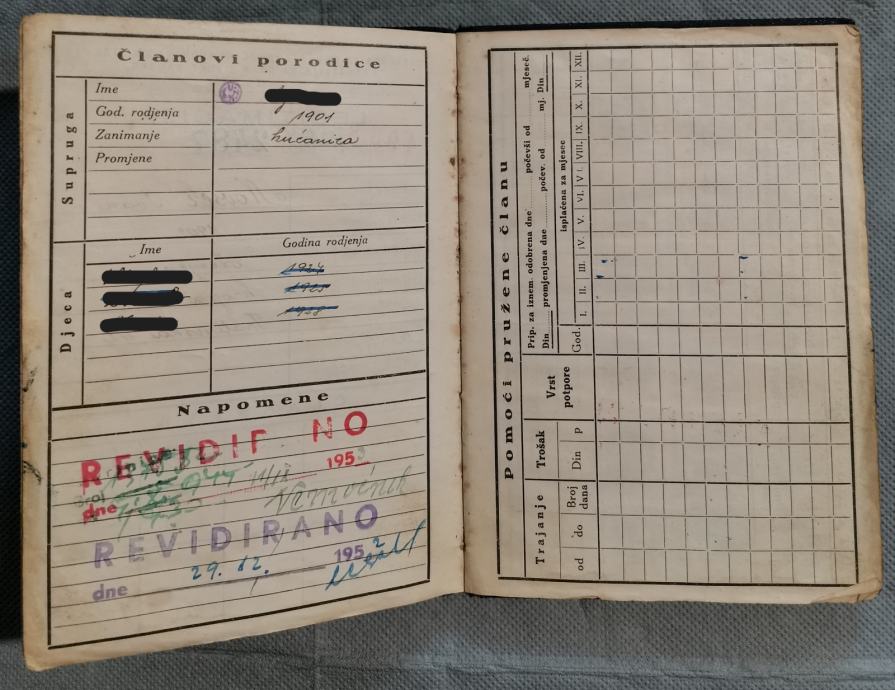 Članovi porodice
Supruga
Ime
God. rodjenja 1901
Zanimanje kućanica
Promjene
Djeca
Ime Godina rodjenja
1924
1925
1928
Napomene
REVIDIRANO
Broj
dne 195
REVIDIRANO
dne 29. 12. 1952
Pomoći pružene članu
Prip. za iznem. odobrena dne počevši od mjeseč.
Din promjenjena dne počev. od mj. Din
isplaćena za mjesec
Trajanje Trošak Vrst potpore God. I. II. III. IV. V. VI. VII. VIII. IX. X. XI. XII.
od do Broj dana Din p